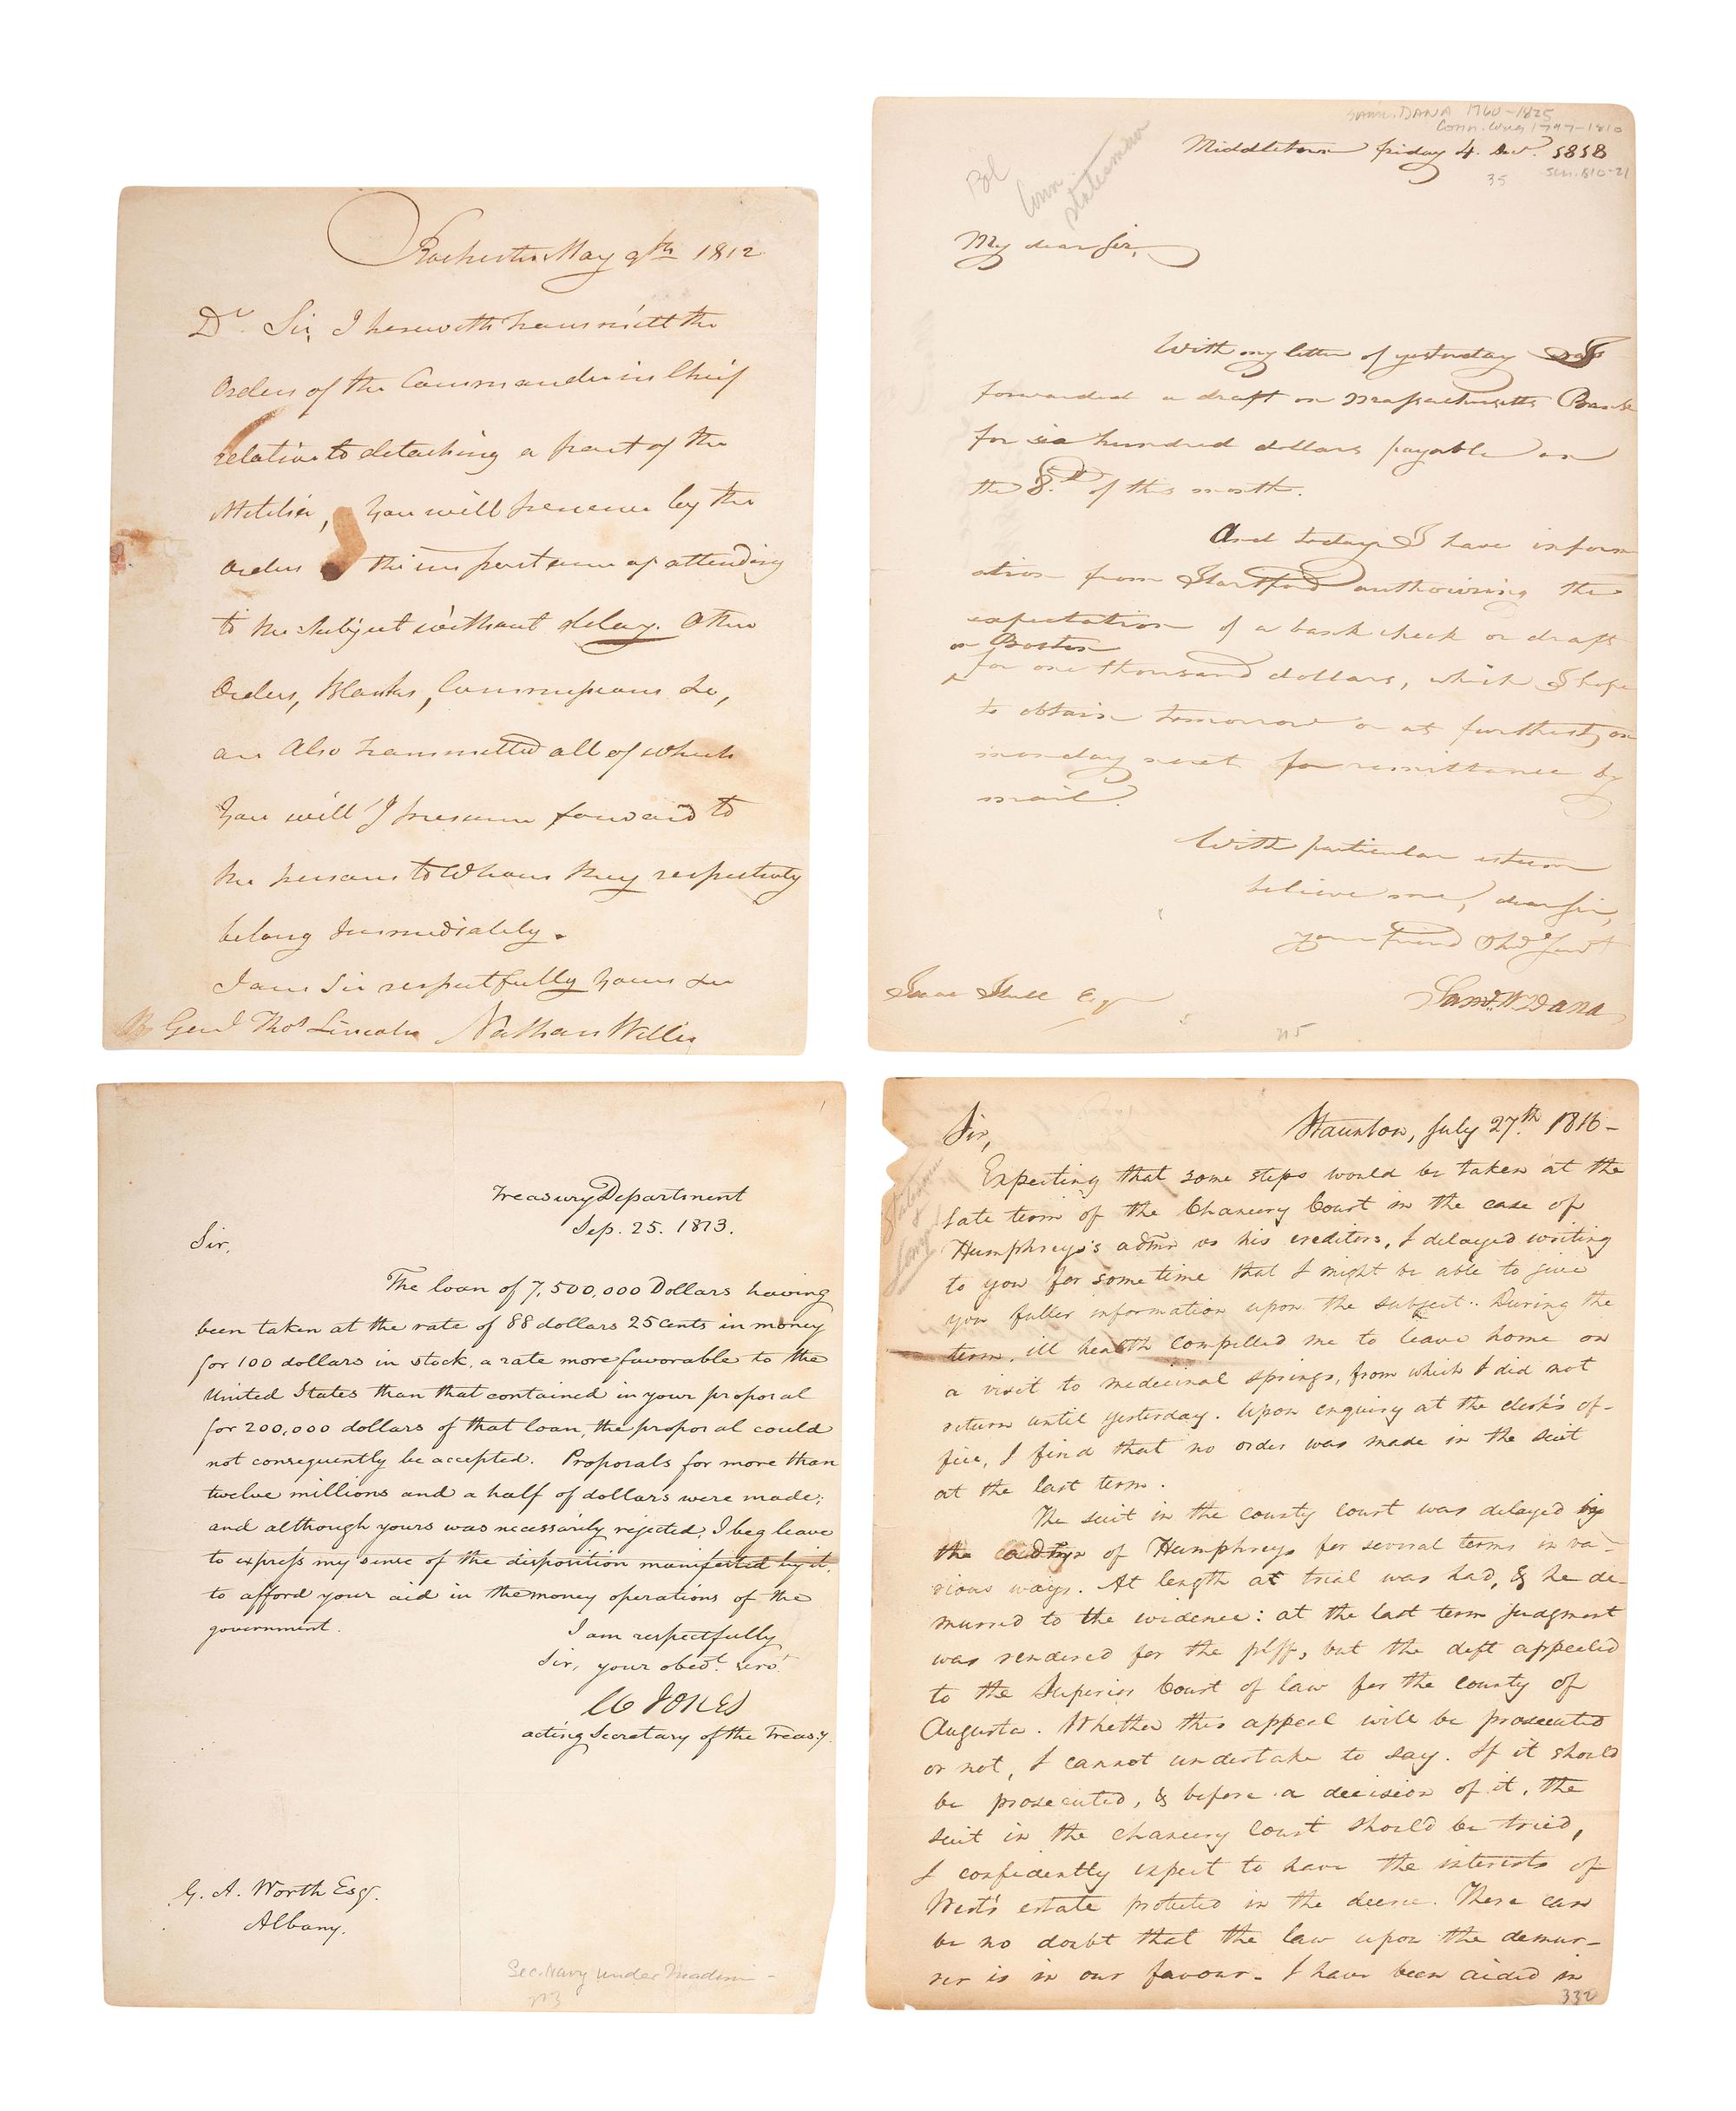 Rochester May 9th 1812
Dr. Sir, I herewith transmitt the
Orders of the Commander in Chief
relative to detaching a part of the
Militia, You will perceive by the
orders the importance of attending
to the subject without delay. Other
Orders, Blanks, Commissions &c,
are Also transmitted all of which
You will I presume forward to
the persons to Whom they respectively
belong Immediately.
I am Sir respectfully Yours &c
Genl. Thos Lincoln Nathan Willis
Saml. DANA 1760-1825
Conn. 1797-1810
Sen. 1810-21
35
Conn
statesman
Middletown friday 4. Decr. 1818
My dear Sir,
With my letter of yesterday was
forwarded a draft on Massachusetts Bank
for six hundred dollars payable on
the 8.th of this month.
And today I have inform
ation from Hartford authorising the
expectation of a bank check or draft
on Boston
for one thousand dollars, which I hope
to obtain tomorrow or at furthest, on
monday next for remittance by
mail.
With particular esteem
believe me, dear Sir,
your friend & hbe Servt
Saml. W Dana
Isaac Hull Esq
Treasury Department
Sep. 25. 1813.
Sir,
The loan of 7,500,000 Dollars having
been taken at the rate of 88 dollars 25 cents in money
for 100 dollars in stock, a rate more favorable to the
United States than that contained in your proposal
for 200,000 dollars of that loan, the proposal could
not consequently be accepted. Proposals for more than
twelve millions and a half of dollars were made;
and although yours was necessarily rejected, I beg leave
to express my sense of the disposition manifested by it,
to afford your aid in the money operations of the
government.
I am respectfully
Sir, your obedt. servt.
W JONES
acting Secretary of the Treasy.
G. A. Worth Esqr.
Albany.
Sec. Navy under Madison
Sir, Staunton, July 27.th 1816-
Expecting that some steps would be taken at the
late term of the Chancery Court in the case of
Humphreys's admr vs his creditors, I delayed writing
to you for some time that I might be able to give
you fuller information upon the subject. During the
term, ill health compelled me to leave home on
a visit to medicinal springs, from which I did not
return until yesterday. Upon enquiry at the clerk's of-
fice, I find that no order was made in the suit
at the last term.
The suit in the county court was delayed by
the admr of Humphreys for several terms in va-
rious ways. At length at trial was had, & he de-
murred to the evidence: at the last term judgment
was rendered for the plff, but the deft appealed
to the Superior Court of law for the county of
Augusta. Whether this appeal will be prosecuted
or not, I cannot undertake to say. If it should
be prosecuted, & before a decision of it, the
suit in the chancery court should be tried,
I confidently expect to have the interests of
West's estate protected in the decree. There can
be no doubt that the law upon the demur-
rer is in our favour. I have been aided in
332